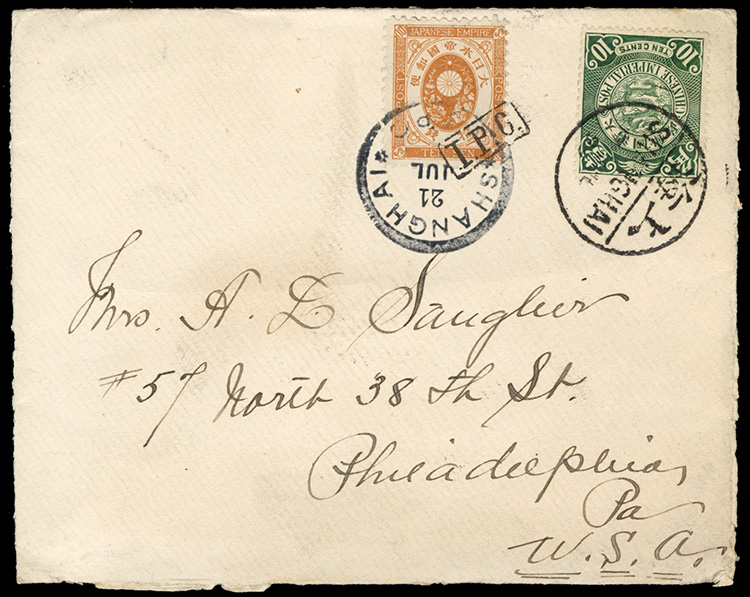 JAPANESE EMPIRE
大日本帝國郵便
POST POST
TEN SEN
I.P.O.
SHANGHAI
21
JUL
10 TEN CENTS 10
CHINESE IMPERIAL POST
SHANGHAI
Mrs. A. L. Sanglier
#57 North 38 th St.
Philadelphia
Pa
U.S.A.